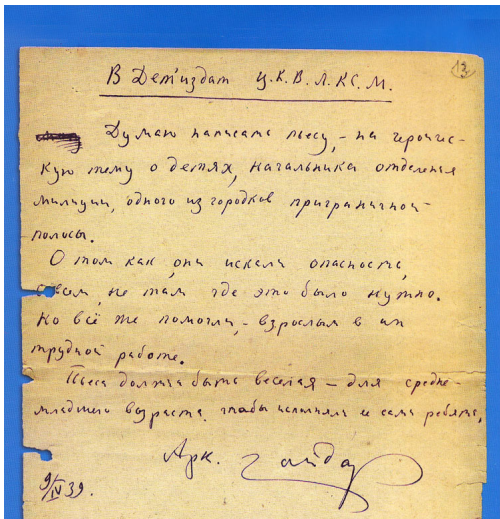 13
В Детиздат Ц.К.В.Л.КС.М.
Думаю написать пьесу, – на героичес-
кую тему о детях, начальника отделения
милиции, одного из городков приграничной
полосы.
О том как, они искали опасность,
совсем, не там где это было нужно.
Но всё же помогли, – взрослым в их
трудной работе.
Пьеса должна быть веселая – для средне-
младшего возраста. чтобы исполняли ее сами ребята.
Арк. Гайдар
9/IV 39.